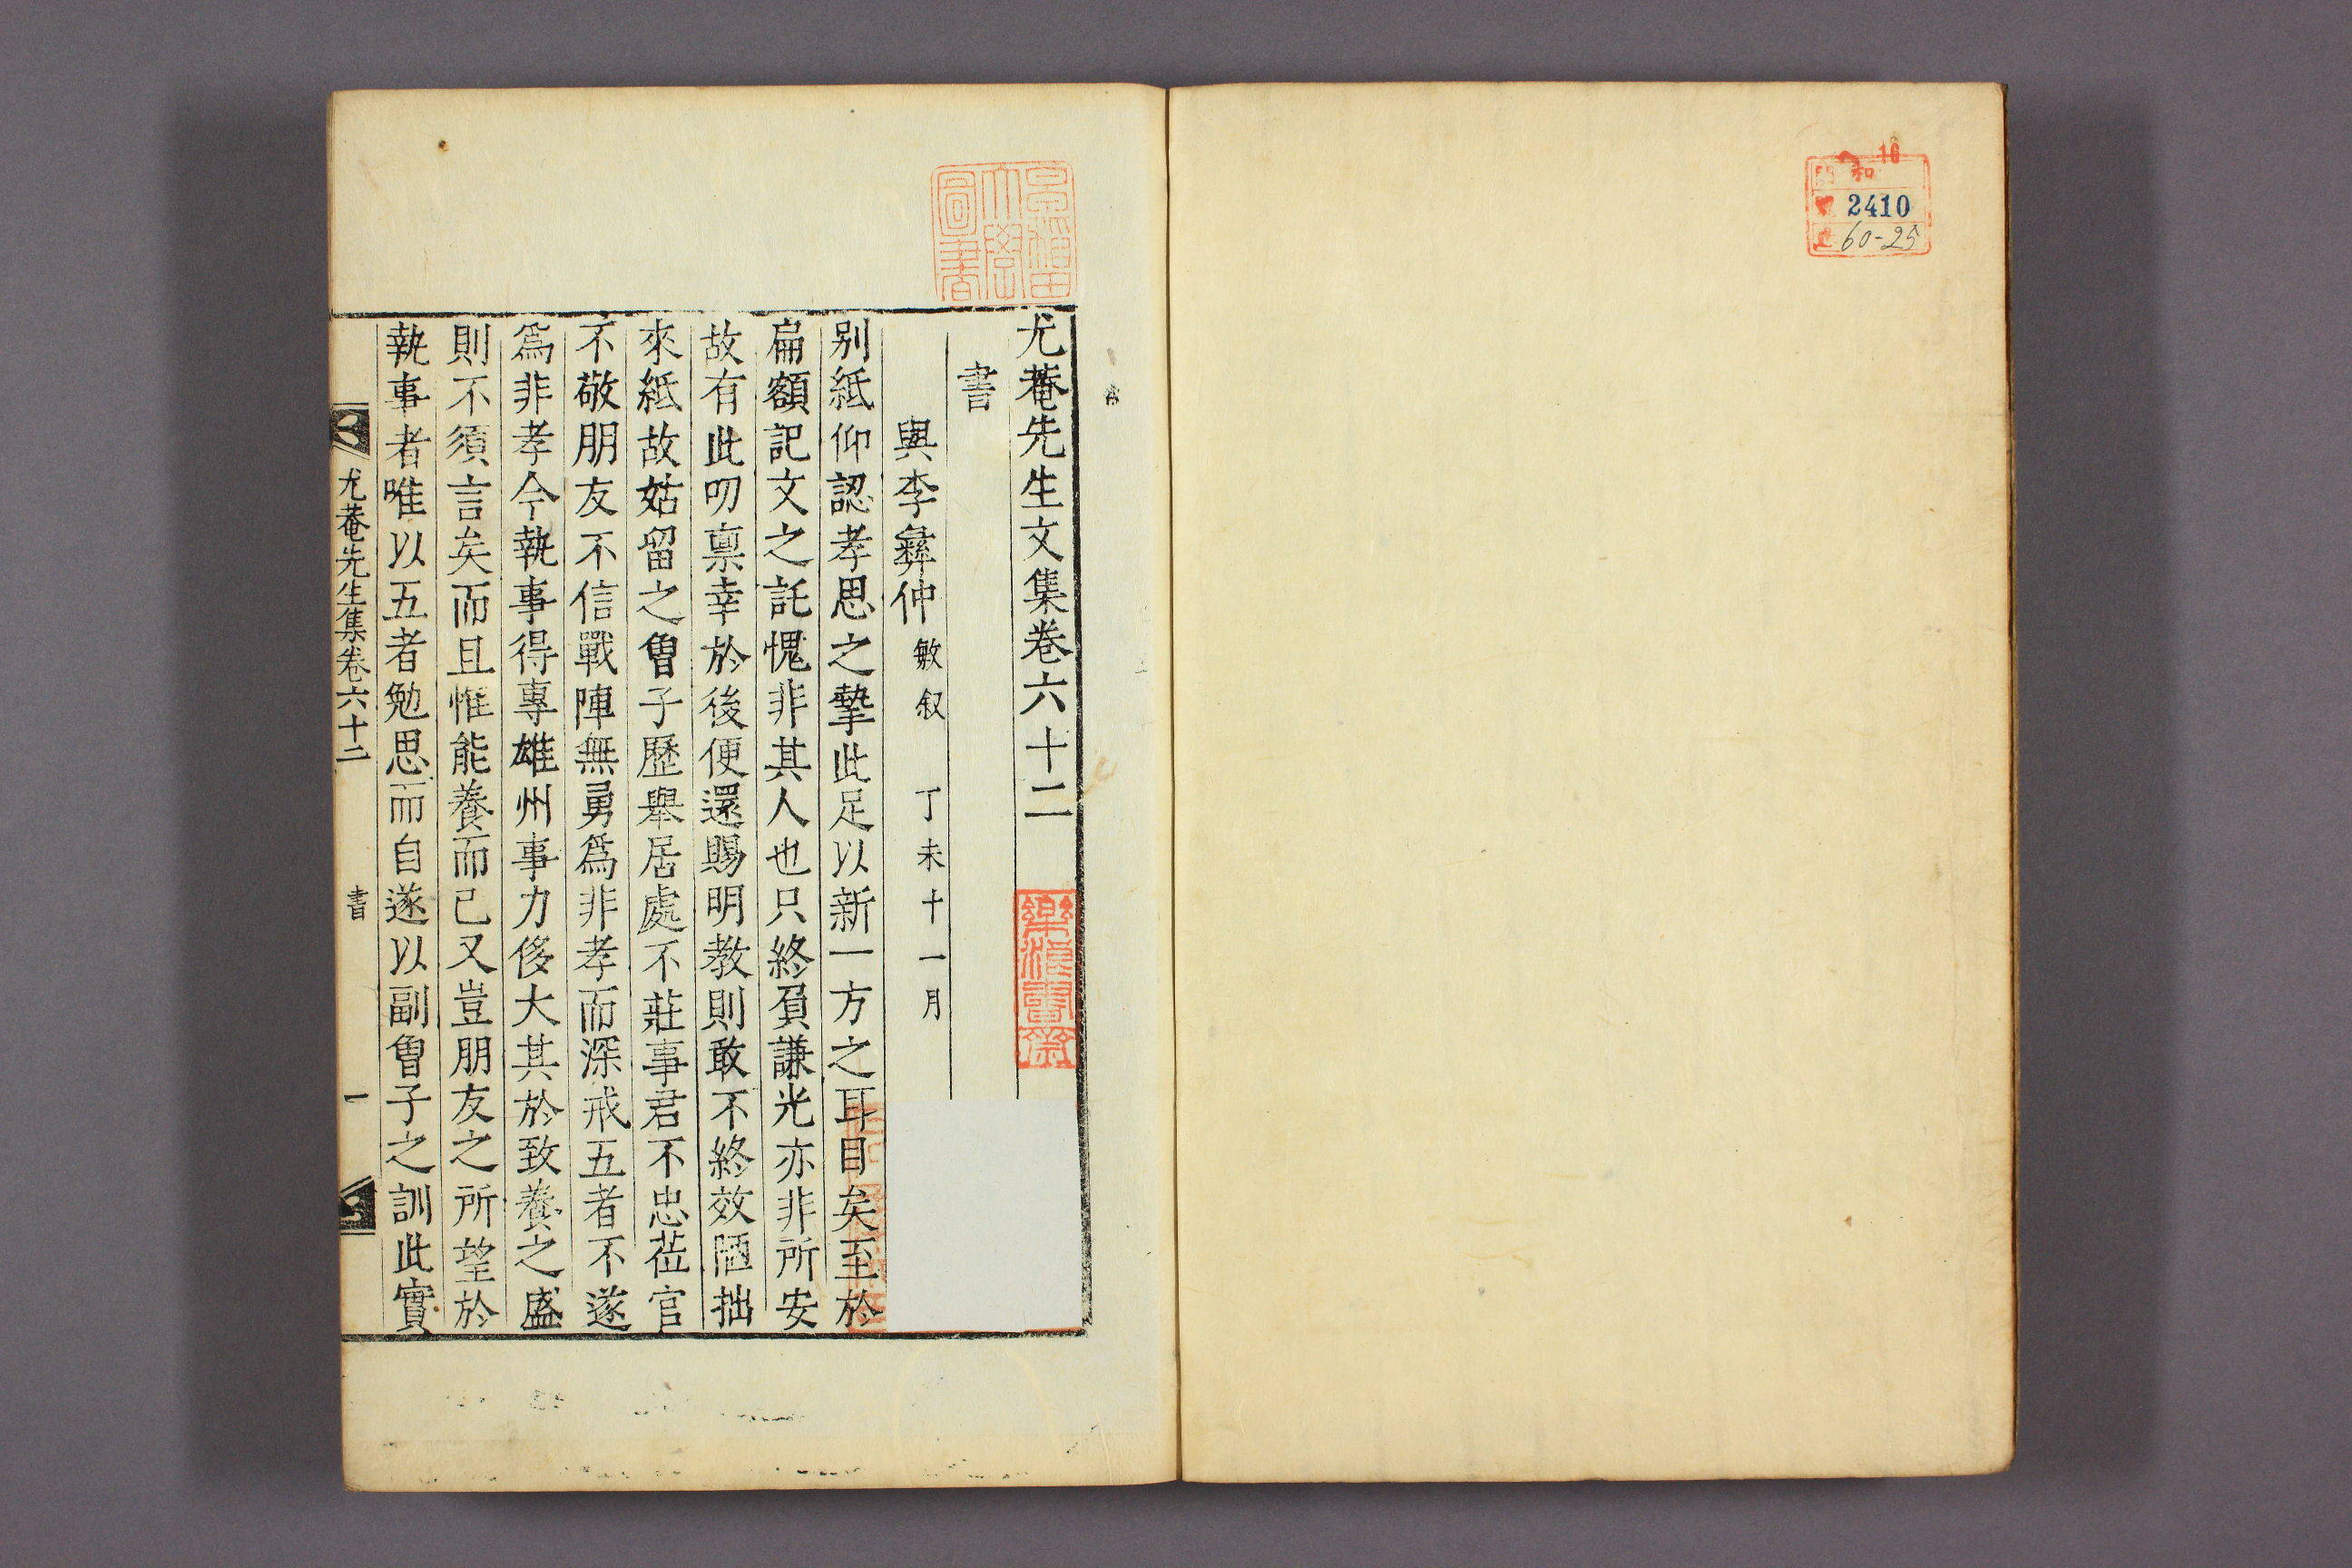 16
和
2410
60-25
尤菴先生文集卷六十二
書
與李彝仲 敏叙 丁未十一月
別紙仰認孝思之摯此足以新一方之耳目矣至於
扁額記文之託愧非其人也只終負謙光亦非所安
故有此叨稟幸於後便還賜明教則敢不終效陋拙
來紙故姑留之曾子歷舉居處不莊事君不忠莅官
不敬朋友不信戰陣無勇爲非孝而深戒五者不遂
爲非孝今執事得專雄州事力侈大其於致養之盛
則不須言矣而且惟能養而已又豈朋友之所望於
執事者唯以五者勉思而自遂以副曾子之訓此實
尤菴先生集卷六十二 書 一
早稲田
大學
圖書